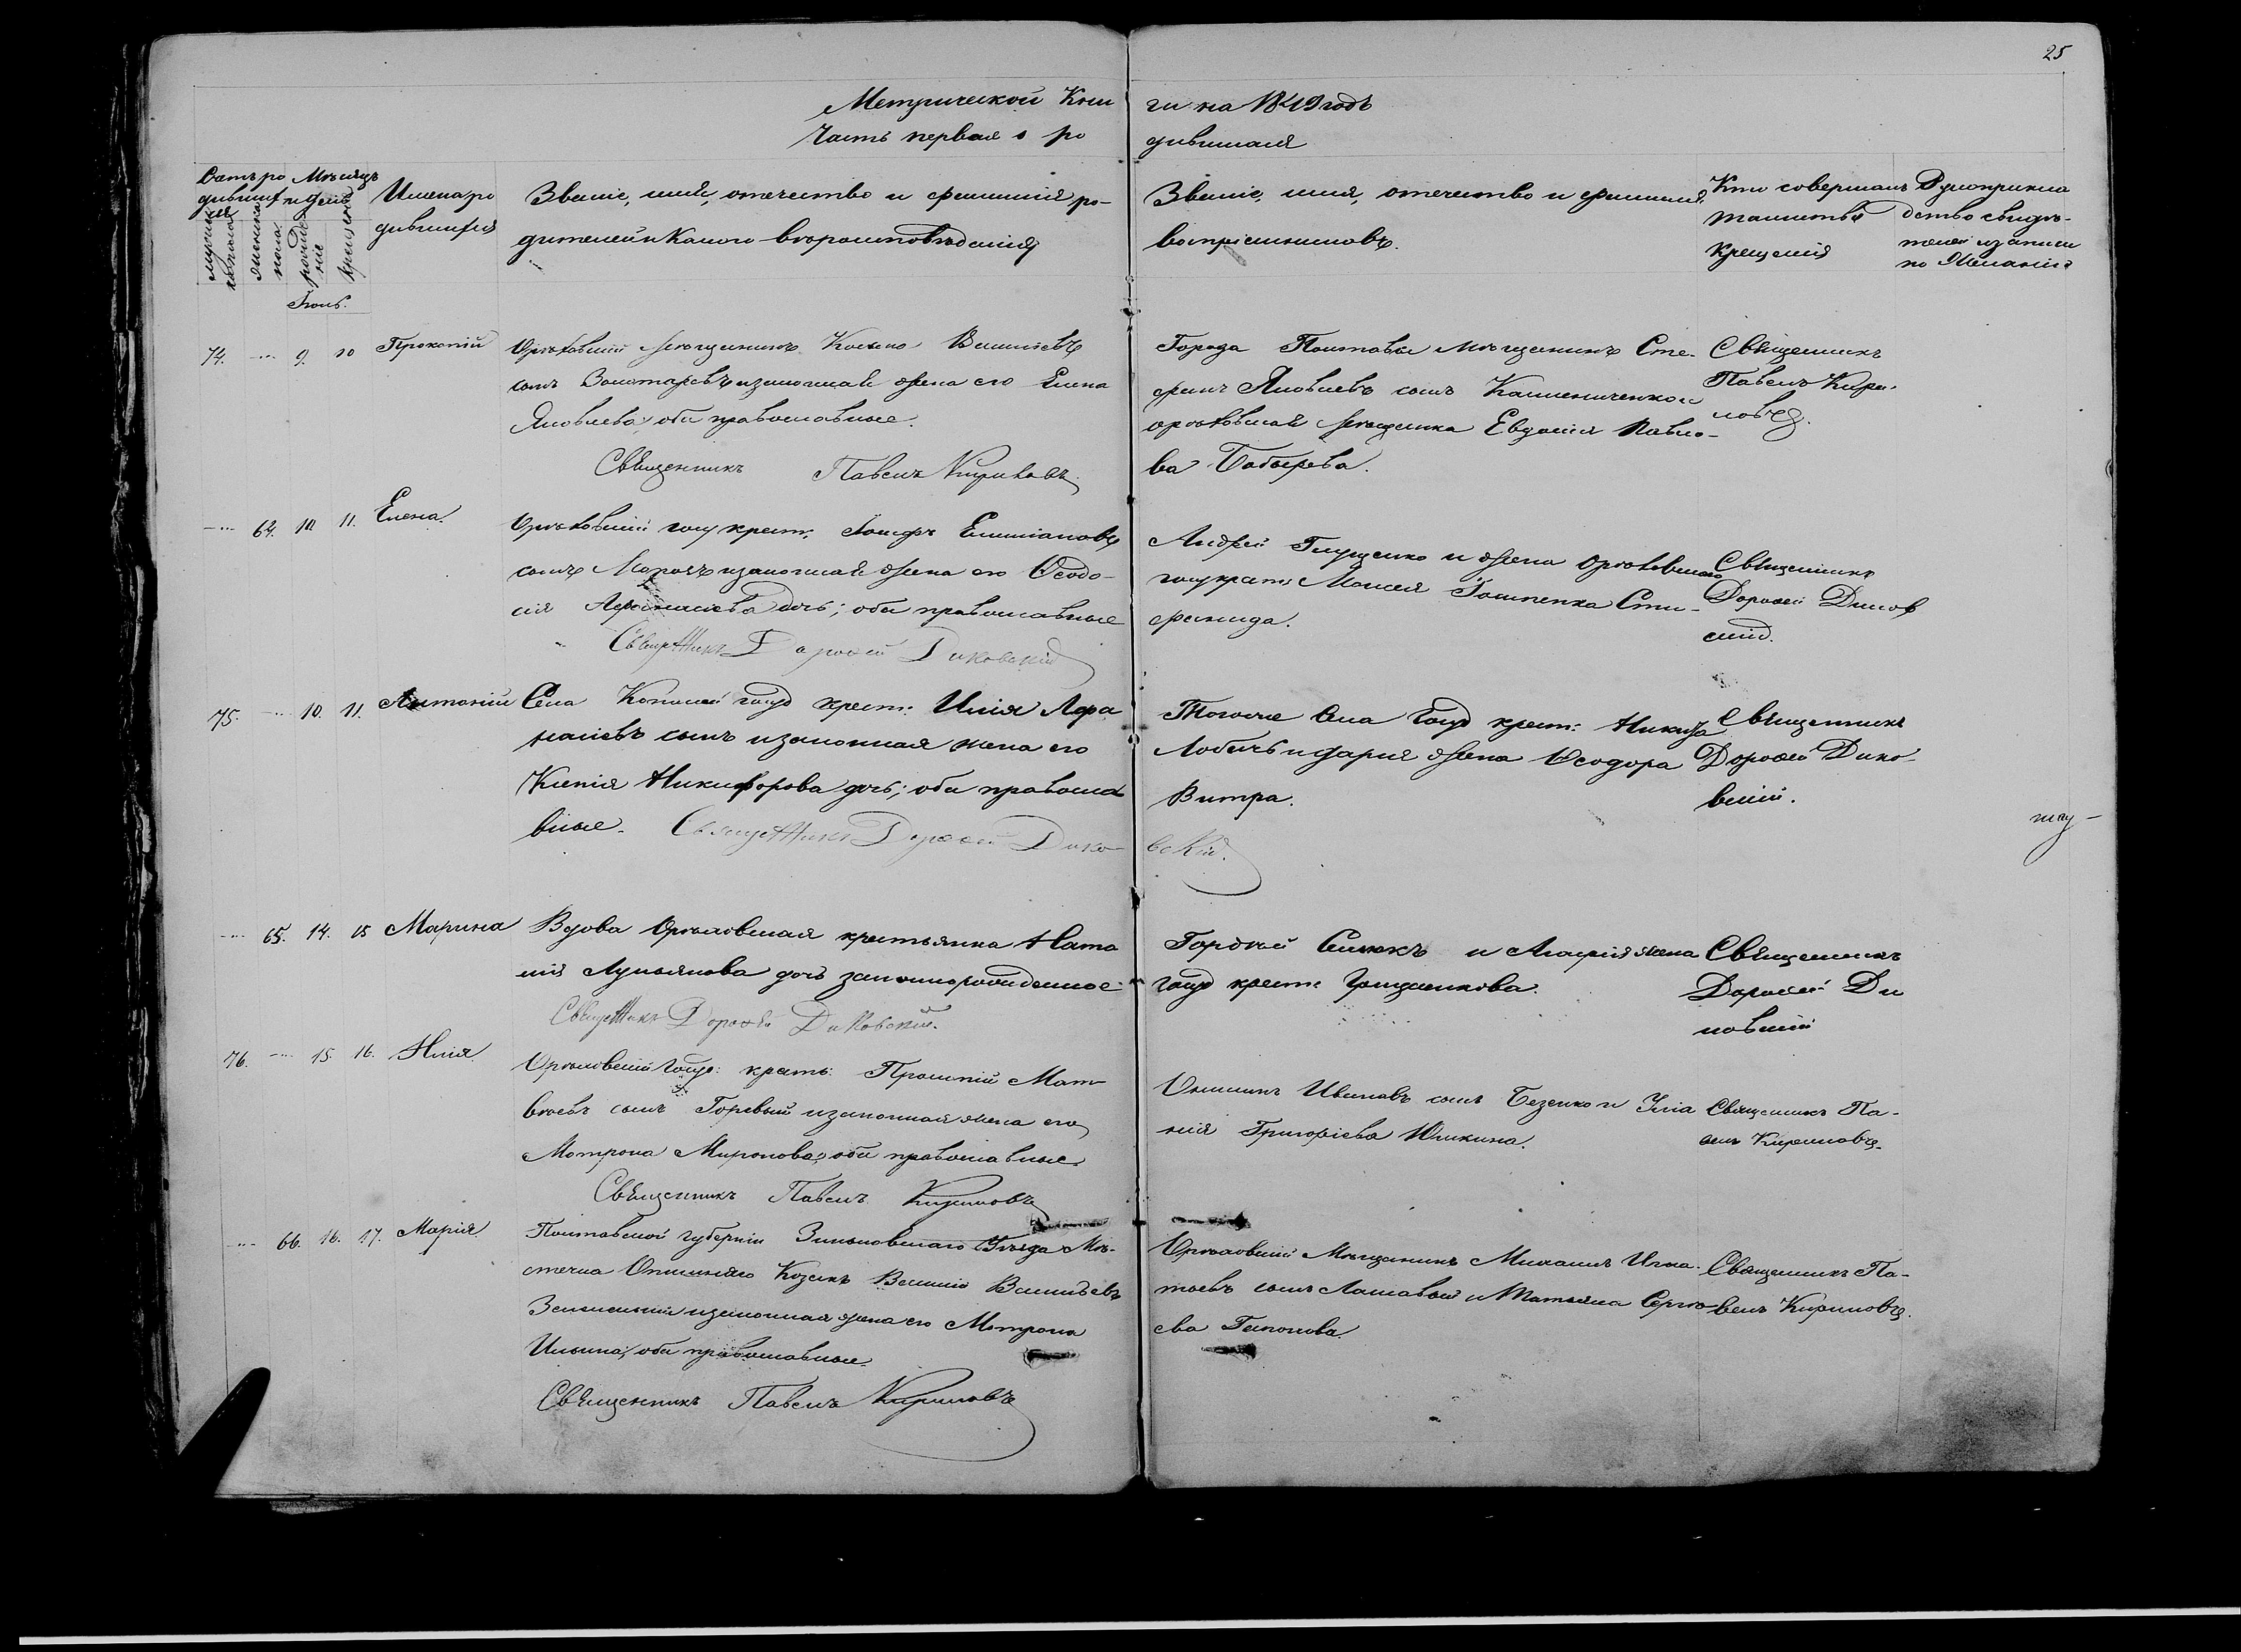 25
Метрической Кни
ги на 1849 годъ
Часть первая о ро
дившихся
Счетъ ро
дившихся
Мѣсяцъ
и день
Имена ро
дившихся
мужеска
пола
женска
пола
рожде
нія
крещенія
Званіе, имя, отечество и фамилія ро-
дителей и какого вѣроисповѣданія
Званіе, имя, отечество и фамилія
воспріемниковъ.
Кто совершалъ
таинство
крещенія
Рукоприкла
дство свидѣ-
телей записи
по желанію
Іюль.
74. 9. 10 Прокопій
Орѣховскій мѣщанинъ Косьма Васильевъ
сынъ Золотаревъ и законная жена его Елена
Яковлева, оба православные.
Священникъ Павелъ Кириловъ
Города Полтавы мѣщанинъ Сте-
фанъ Яковлевъ сынъ Калениченко и
орѣховская мѣщанка Евдокія Павло-
ва Бабырева.
Священникъ
Павелъ Кири-
ловъ.
64. 10 11. Елена.
Орѣховскій госу крест. Іосифъ Емиліановъ
сынъ Морозъ и законная жена его Ѳеодо-
сія Афанасіева дочь; оба православные
Священникъ Дорофей Диковскій
Андрей Глущенко и жена Орѣховскаго
госу крест: Моисея Гонтенка Сте-
фанида.
Священникъ
Дорофей Диков
скій.
75. 10. 11. Антоній
Села Копаней госуд крест: Илія Афа
насіевъ сынъ и законная жена его
Ксенія Никифорова дочь; оба правосла
вные. Священникъ Дорофей Дико-
вскій.
Тогоже села госуд крест: Никита
Лобачь и Дарія жена Ѳеодора
Витра.
Священникъ
Дорофей Дико-
вскій.
65. 14. 15 Марина
Вдова Орѣховская крестьянка Ната
лія Лукьянова дочь законнорожденное
Священникъ Дорофей Диковскій.
Гордѣй Силюкъ и Агафія жена
госуд крест: Грищенкова.
Священникъ
Дорофей Ди
ковскій
76. 15. 16. Илія
Орѣховскій госуд: крест: Прокопій Мат-
вѣевъ сынъ Горевый и законная жена его
Мотрона Миронова, оба православные.
Священникъ Павелъ Кириловъ
Онисимъ Ивановъ сынъ Безенко и Уліа
нія Григоріева Юшкина.
Священникъ Па-
велъ Кириловъ.
66. 16. 17. Марія
Полтавской губерніи Зиньковскаго Уѣзда Мѣ-
стечка Опошняго Козакъ Василій Васильевъ
Зеленскій и законная жена его Мотрона
Ильина, оба православные.
Священникъ Павелъ Кириловъ
Орѣховскій Мѣщанинъ Михаилъ Игна-
тьевъ сынъ Лашавый и Татьяна Сергѣ-
ева Гапонова.
Священникъ Па-
велъ Кириловъ.